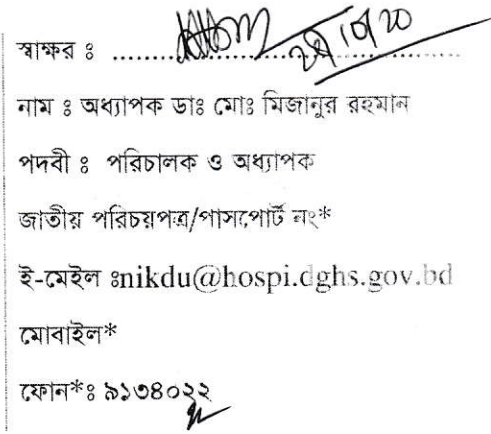 স্বাক্ষর ঃ ........................................
নাম ঃ অধ্যাপক ডাঃ মোঃ মিজানুর রহমান
পদবী ঃ পরিচালক ও অধ্যাপক
জাতীয় পরিচয়পত্র/পাসপোর্ট নং*
ই-মেইল ঃnikdu@hospi.dghs.gov.bd
মোবাইল*
ফোন*ঃ ৯১৩৪০২২